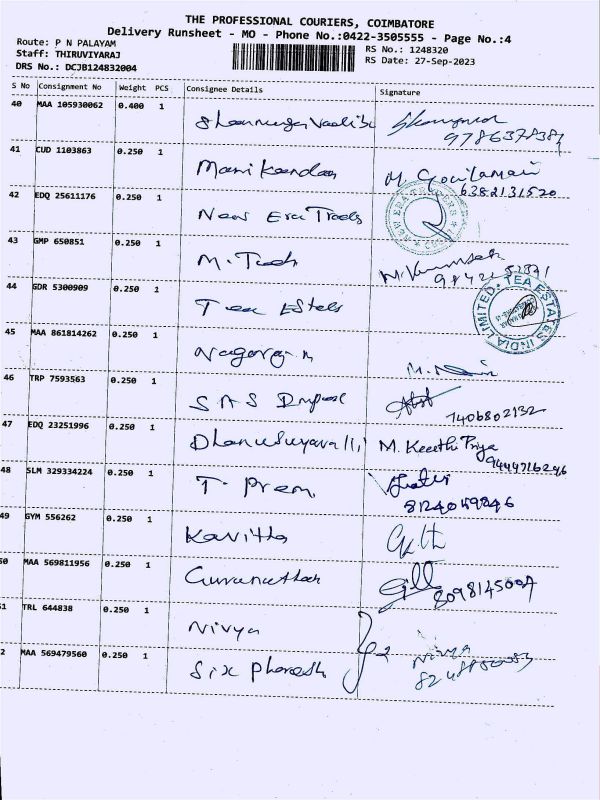 THE PROFESSIONAL COURIERS, COIMBATORE
Delivery Runsheet - MO - Phone No.:0422-3505555 - Page No.:4
Route: P N PALAYAM
RS No.: 1248320
Staff: THIRUVIYARAJ
RS Date: 27-Sep-2023
DRS No.: DCJB124832004
S No Consignment No Weight PCS Consignee Details Signature
40 MAA 105930062 0.400 1
41 CUD 1103863 0.250 1 Manikandan M.
6382131520
42 EDQ 25611176 0.250 1 New Era Trads
NEW ERA TRADERS
43 GMP 650851 0.250 1 M. Tech
44 GDR 5300909 0.250 1 Tea Estates
TEA ESTATES INDIA LIMITED
45 MAA 861814262 0.250 1 Nagaraj n
46 TRP 7593563 0.250 1 S A S
7406802132
47 EDQ 23251996 0.250 1 M. Keerthi Priya
9444716246
48 SLM 329334224 0.250 1 T. Prem
8124049846
49 GYM 556262 0.250 1 Kavitha
50 MAA 569811956 0.250 1 Gurunathan
8098145007
51 TRL 644838 0.250 1 Nivya
2 MAA 569479560 0.250 1 Six Nivya